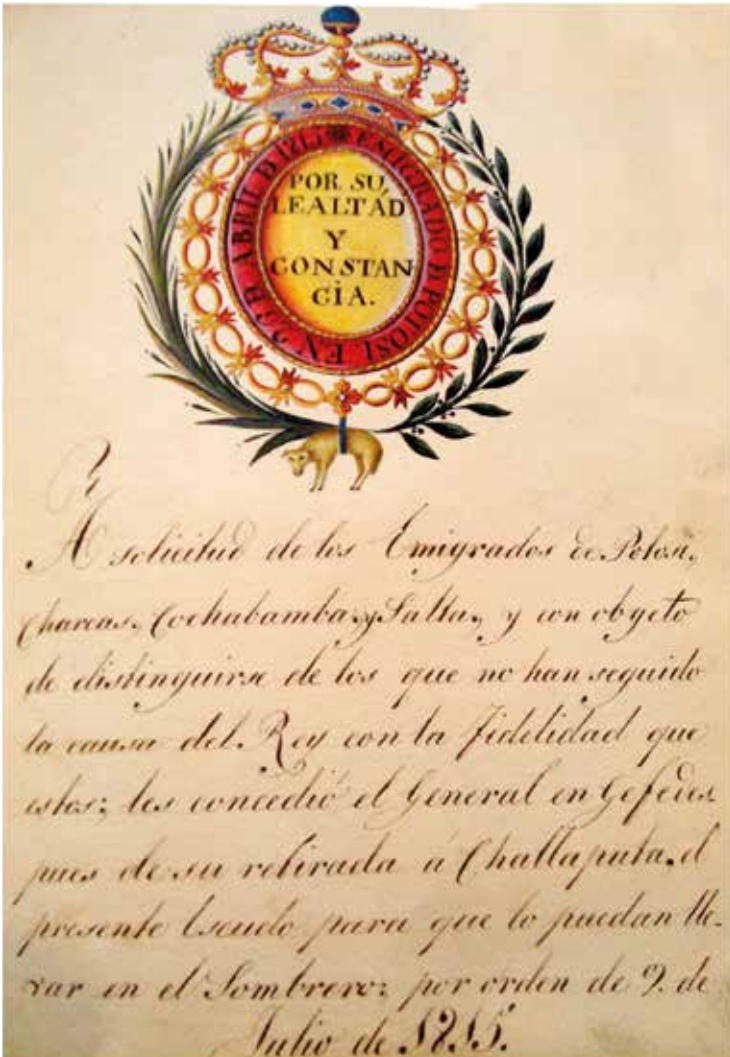 EMIGRADO D POTOSI EN D ABRIL D
POR SU
LEALTÁD
Y
CONSTAN
CIA.
A solicitud de los Emigrados de Potosi,
Charcas, Cochabamba, y Salta, y con obgeto
de distinguirse de los que no han seguido
la causa del Rey con la fidelidad que
estos; les concedió el General en Gefe des-
pues de su retirada á Challapata, el
presente Escudo para que lo puedan lle-
var en el Sombrero; por orden de 9. de
Julio de 1815.